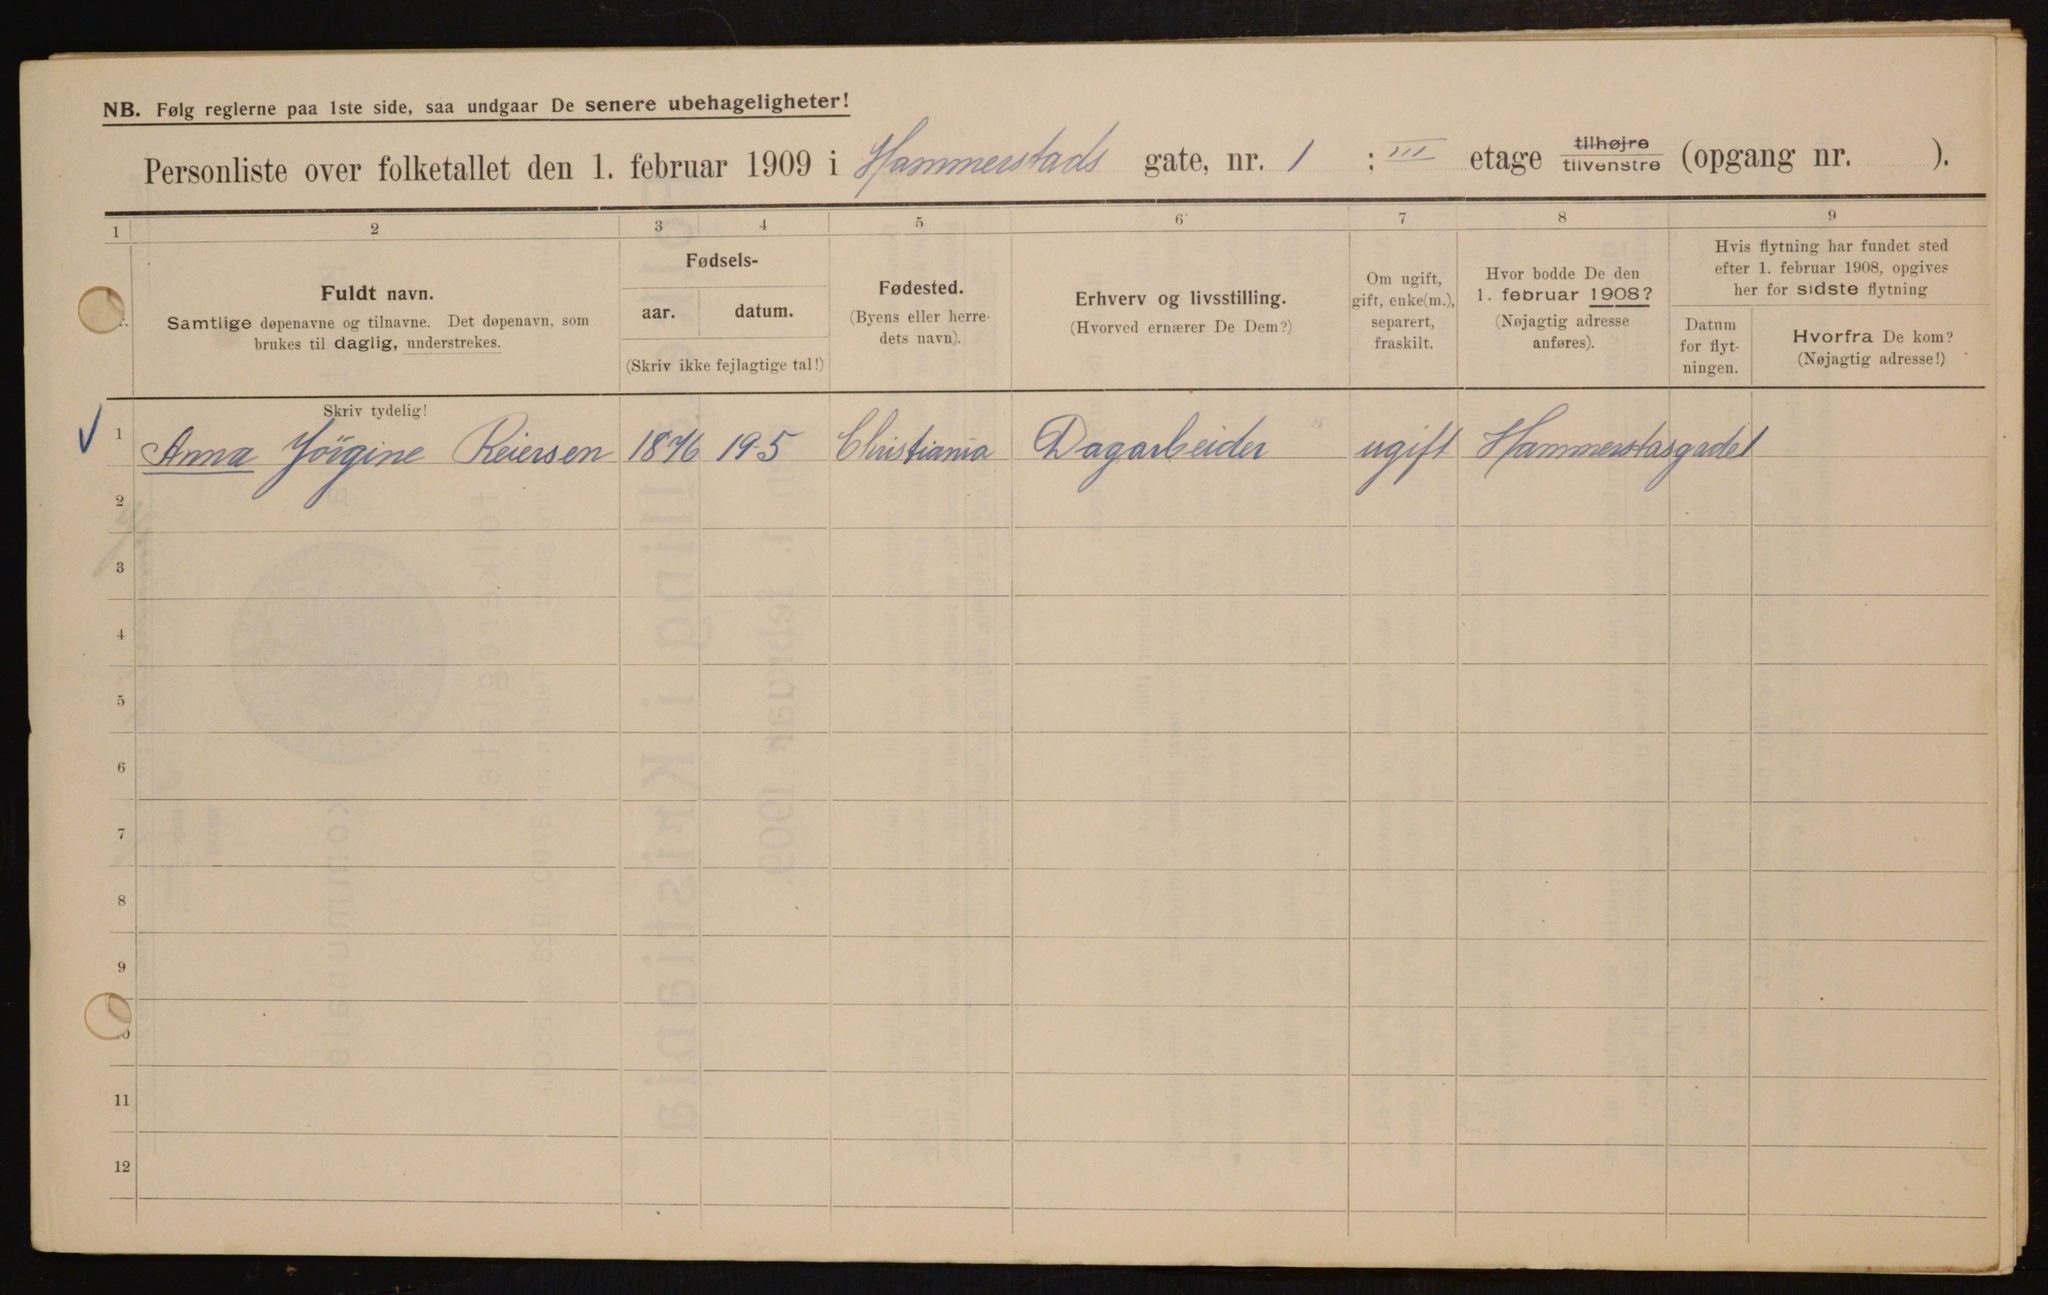 NB. Følg reglerne paa 1ste side, saa undgaar De senere ubehageligheter!
Personliste over folketallet den 1. februar 1909 i Hammerstads gate, nr. 1 : III etage tilhøjre tilvenstre (opgang nr. ).
1 2 3 4 5 6 7 8 9
Fuldt navn.
Samtlige døpenavne og tilnavne. Det døpenavn, som
brukes til daglig, understrekes.
Fødsels-
aar. datum.
(Skriv ikke fejlagtige tal!)
Fødested.
(Byens eller herre-
dets navn).
Erhverv og livsstilling.
(Hvorved ernærer De Dem?)
Om ugift,
gift, enke(m.),
separert,
fraskilt.
Hvor bodde De den
1. februar 1908?
(Nøjagtig adresse
anføres).
Hvis flytning har fundet sted
efter 1. februar 1908, opgives
her for sidste flytning
Datum
for flyt-
ningen.
Hvorfra De kom?
(Nøjagtig adresse!)
Skriv tydelig!
1 Anna Jörgine Reiersen 1876 19-5 Christiania Dagarbeider ugift Hammerstasgade 1
2
3
4
5
6
7
8
9
11
12